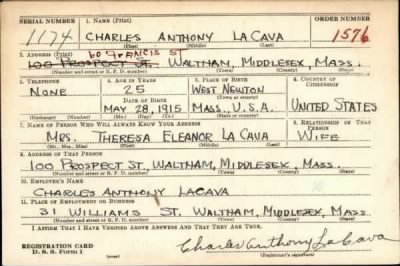 SERIAL NUMBER 1. NAME (Print) ORDER NUMBER
1174 CHARLES ANTHONY LA CAVA 1576
(First) (Middle) (Last)
60 FRANCIS ST
2. ADDRESS (Print)
100 PROSPECT ST. WALTHAM, MIDDLESEX, MASS.
(Number and street or R. F. D. number) (Town) (County) (State)
3. TELEPHONE 4. AGE IN YEARS 5. PLACE OF BIRTH 6. COUNTRY OF CITIZENSHIP
NONE 25 WEST NEWTON
(Town or county)
DATE OF BIRTH
MAY 28, 1915 MASS., U.S.A. UNITED STATES
(Exchange) (Number) (Mo.) (Day) (Yr.) (State or country)
7. NAME OF PERSON WHO WILL ALWAYS KNOW YOUR ADDRESS 8. RELATIONSHIP OF THAT PERSON
MRS. THERESA ELEANOR LA CAVA WIFE
(Mr., Mrs., Miss) (First) (Middle) (Last)
9. ADDRESS OF THAT PERSON
100 PROSPECT ST., WALTHAM, MIDDLESEX, MASS.
(Number and street or R. F. D. number) (Town) (County) (State)
10. EMPLOYER'S NAME
CHARLES ANTHONY LACAVA
11. PLACE OF EMPLOYMENT OR BUSINESS
31 WILLIAMS ST. WALTHAM, MIDDLESEX, MASS
(Number and street or R. F. D. number) (Town) (County) (State)
I AFFIRM THAT I HAVE VERIFIED ABOVE ANSWERS AND THAT THEY ARE TRUE.
REGISTRATION CARD
D. S. S. Form 1
Charles Anthony La Cava
(Registrant's signature)